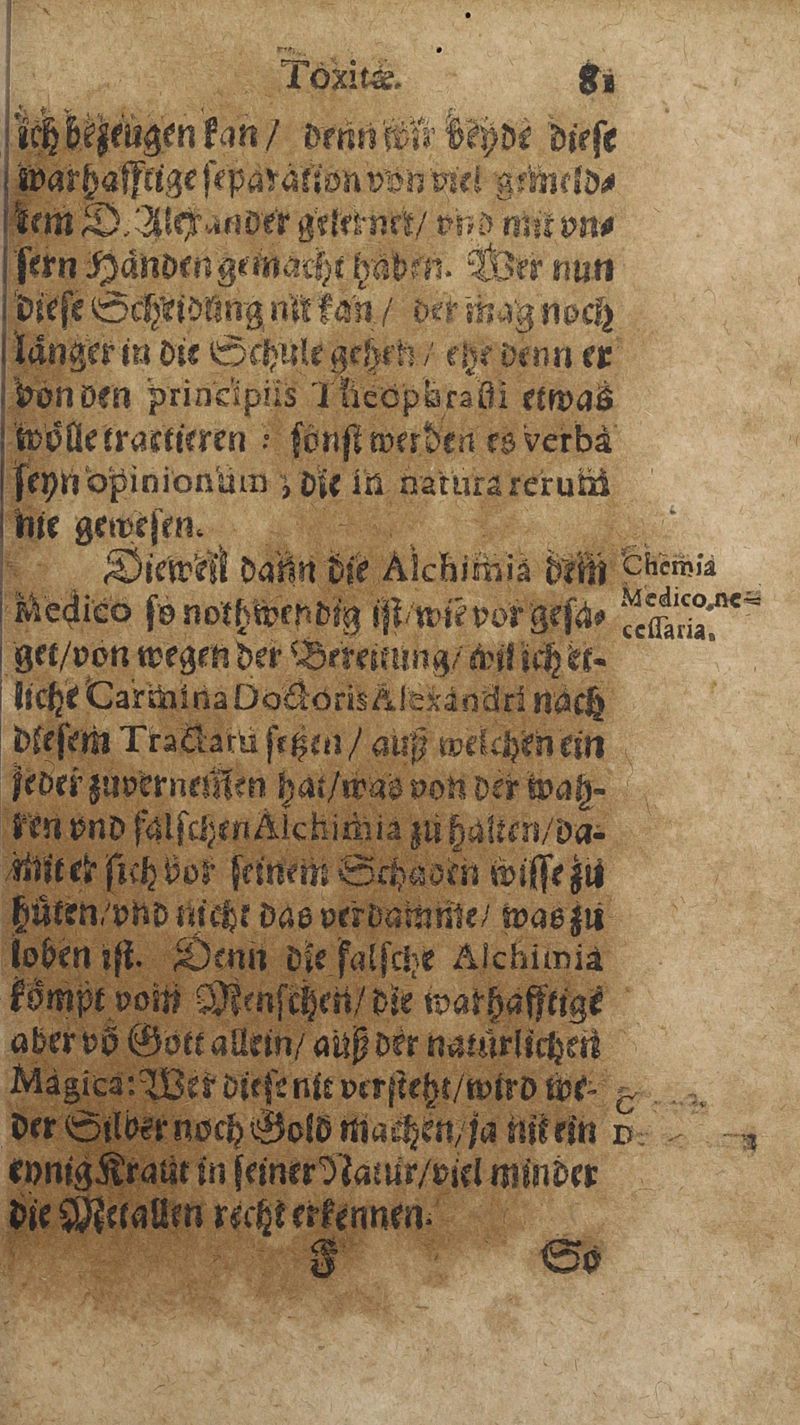 Toxitæ. 81
ich bezeugen kan / denn wir beyde diese
warhafftige separation von viel gemeld⸗
tem D. Alexander gelernet / vnd mit vn⸗
sern Händen gemacht haben. Wer nun
diese Scheidung nit kan / der mag noch
länger in die Schule gehen / ehe denn er
von den principiis Theophrasti etwas
wölle tractieren : sonst werden es verba
seyn opinionum, die in natura rerum
nie gewesen.
Dieweil dann die Alchimia dem
Medico so nothwendig ist / wie vor gesa⸗
get / von wegen der Bereitung / wil ich et-
liche Carmina Doctoris Alexandri nach
diesem Tractatu setzen / auß welchen ein
jeder zuvernemen hat / was von der wah-
ren vnd falschen Alchimia zu halten / da-
mit er sich vor seinem Schaden wisse zu
hüten / vnd nicht das verdamme / was zu
loben ist. Denn die falsche Alchimia
kömpt vom Menschen / die warhafftige
aber võ Gott allein / auß der natürlichen
Magica: Wer diese nit versteht / wird we-
der Silber noch Gold machen / ja nit ein
eynig Kraut in seiner Natur / viel minder
die Metallen recht erkennen.
Chemia
Medico ne-
cessaria.
F So